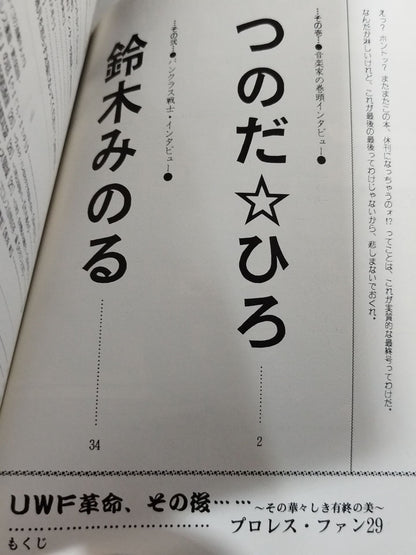 えっ？ホントッ？まだまだこの本、休刊になっちゃうのォ!?ってことは、これが実質的な最終号ってわけだ。
なんだか淋しいけれど、これが最後の最後ってわけじゃないから、悲しまないでおくれ。
…その壱…●音楽家の巻頭インタビュー●
つのだ☆ひろ……………2
…その弐…●パンクラス戦士・インタビュー●
鈴木みのる……………34
UWF革命、その後……～その華々しき有終の美～
もくじ……………プロレス・ファン29